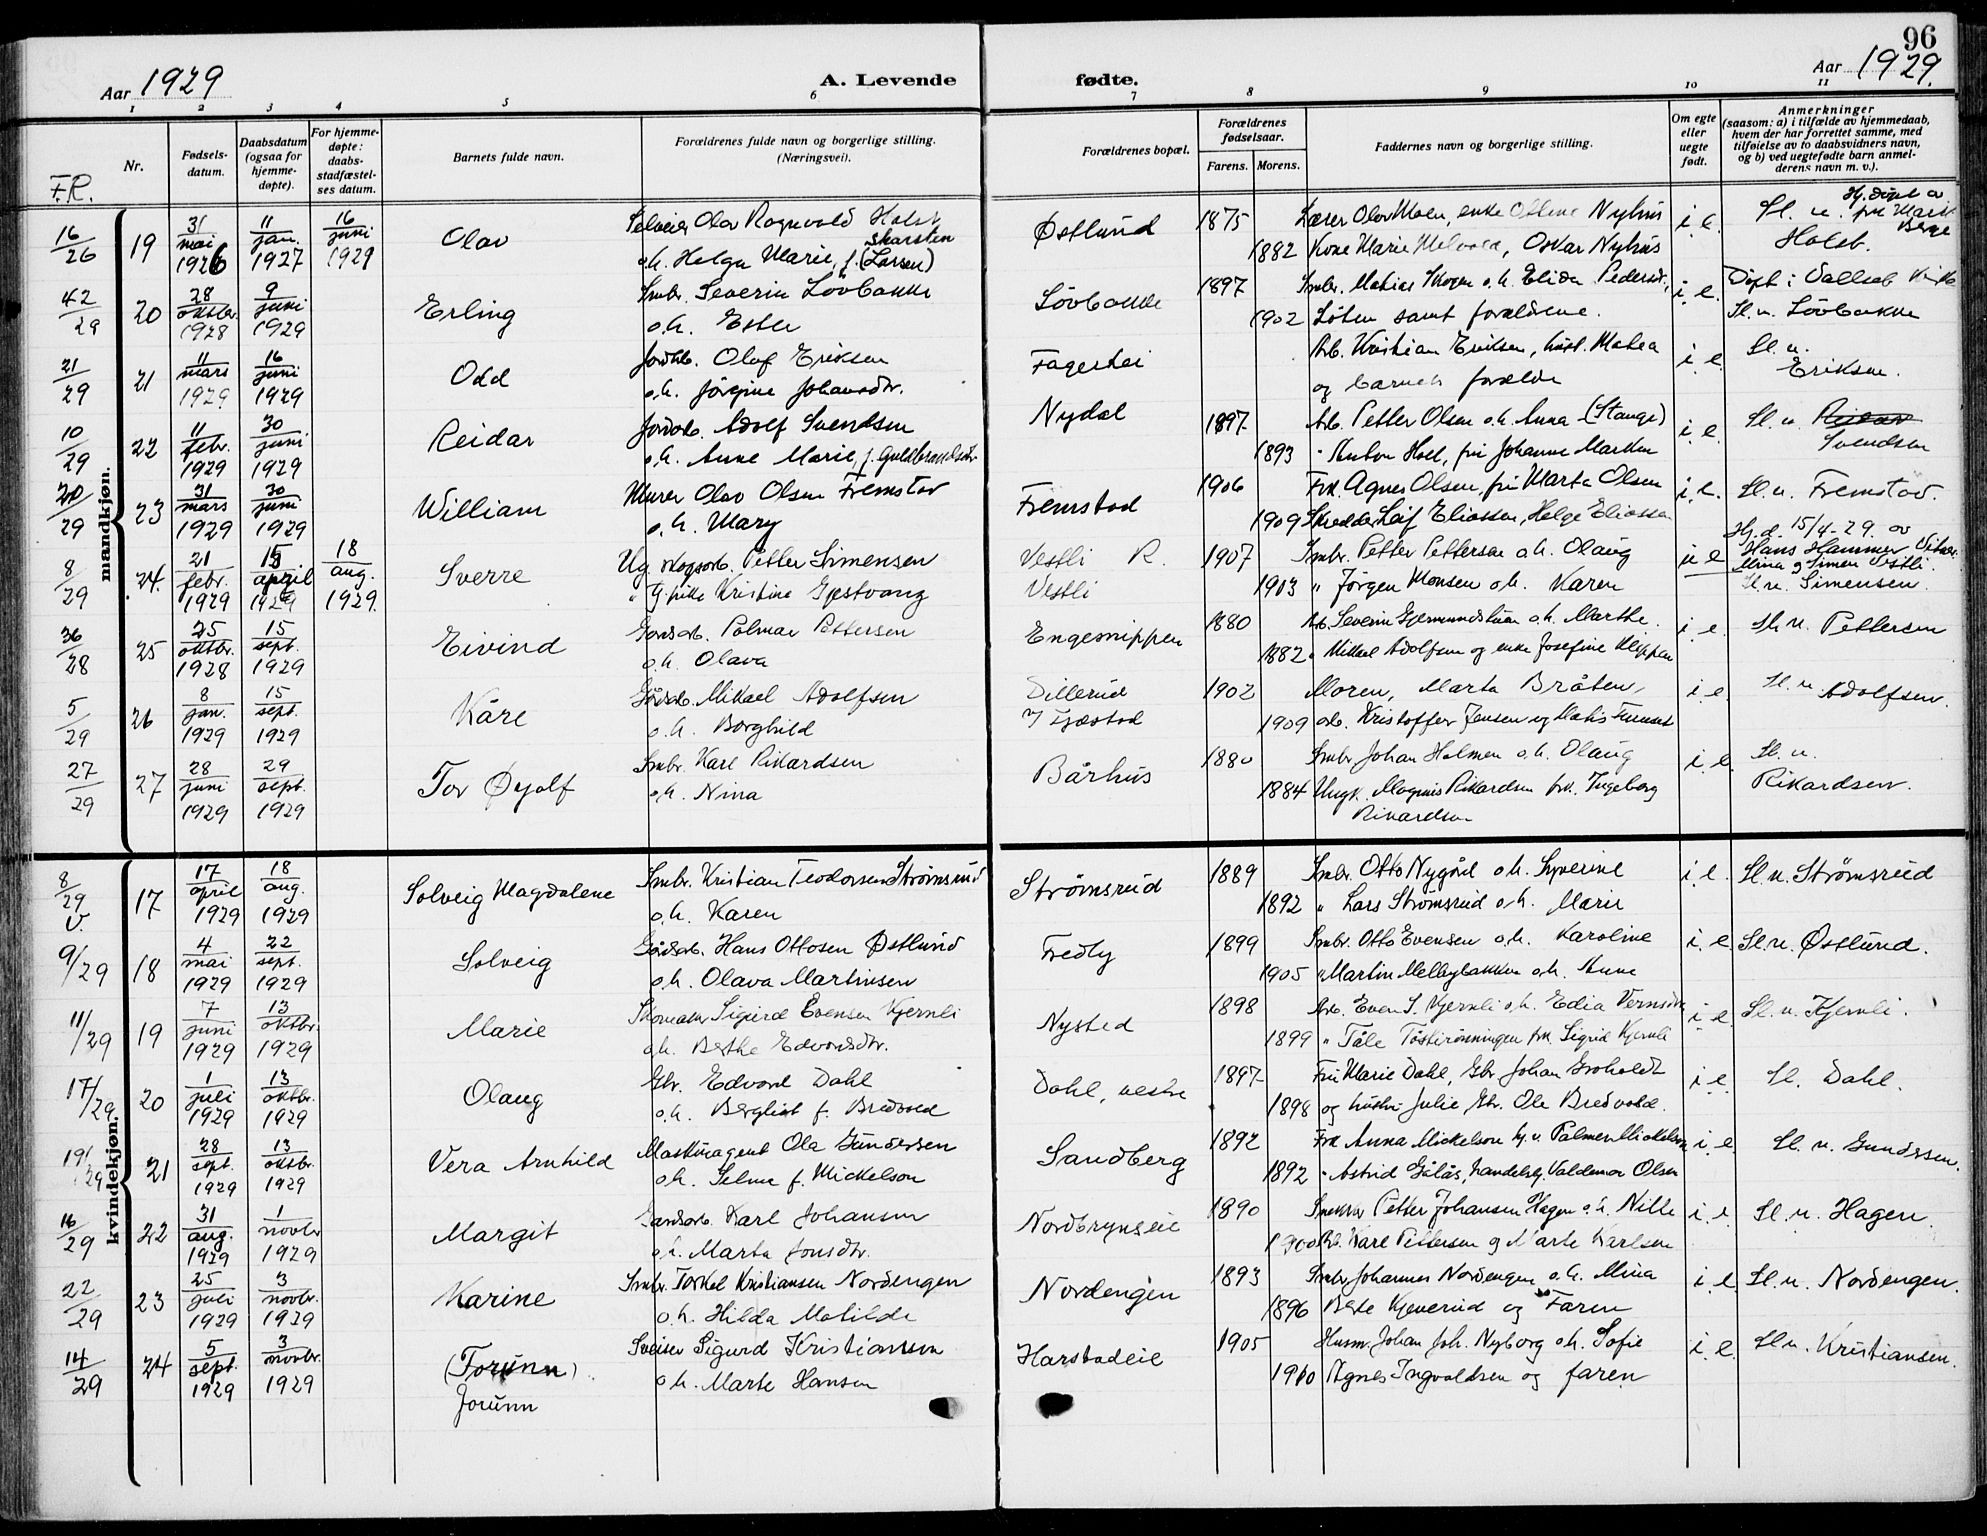 96
Aar 1929
A. Levende fødte.
Aar 1929.
1 2 3 4 5 6 7 8 9 10 11
Nr.
Fødsels-
datum.
Daabsdatum
(ogsaa for
hjemme-
døpte).
For hjemme-
døpte:
daabs-
stadfæstel-
ses datum.
Barnets fulde navn.
Forældrenes fulde navn og borgerlige stilling.
(Næringsvei).
Forældrenes bopæl.
Forældrenes
fødselsaar.
Farens. Morens.
Faddernes navn og borgerlige stilling.
Om egte
eller
uegte
født.
Anmerkninger
(saasom: a) i tilfælde av hjemmedaab,
hvem der har forrettet samme, med
tilføielse av to daabsvidners navn,
og b) ved uegtefødte barn anmel-
derens navn m. v.).
F.R.
mandkjøn.
16/26 19 31/mai 1926 11/jan. 1927 16/juni 1929 Olav Selveier Olav Ragnvald Holst Skarsten Østlund 1875 i.e. Sl. u.
o.h. Helga Marie, f. (Larsen) 1882 Kone Marie Oskar Nyhus
42/29 20 28/oktbr. 1928 9/juni 1929 Erling Smbr. Severin Lövbakke Lövbakke 1897 Smbr. Matias Skogen o.h. Elida Pedersdr., i.e. Døpt i Vallset Kirke
o.h. Ester 1902 Løten samt forældrene. Sl. u. Lövbakke
21/29 21 11/mars 1929 16/juni 1929 Odd Jordb. Olaf Eriksen Fagerhei Arb. Kristian Eriksen, hust. Matea i e. Sl. u.
o.h. Jørgine Johansdtr. og barnets forældre Eriksen.
10/29 22 11/febr. 1929 30/juni 1929 Reidar Jordarb. Adolf Svendsen Nydal 1897 Arb. Petter Olsen o.h. Anna (Stange) i.e. Sl. u. Svendsen
o.h. Anne Marie, f. Guldbrandsdtr. 1893 " Anton Hoel, fru Johanne Marken
20/29 23 31/mars 1929 30/juni 1929 William Murer Olav Olsen Fremstad Fremstad 1906 Frk. Agnes Olsen, fru Marta Olsen i.e. Sl. u. Fremstad.
o.h. Mary 1909 Skredder Leif Eliassen, Helge Eliassen
8/29 24. 21/febr. 1929 15/april 1929 18/aug. 1929. Sverre Ug. skogsarb. Petter Simensen Vestli R. 1907 Smbr. Petter Pettersen o.h. Olaug u e Hj. d. 15/4-29. av
" g. pike Kristine Gjestvang Vestli 1903 " Jørgen Monsen o.h. Karen Hans Hammer. Vitner:
Mina og Simen Vestli.
Sl. u. Simensen.
36/28 25 25/oktbr. 1928 15/sept. 1929 Eivind Gårdsarb. Palmar Pettersen Engesnippen 1880 Arb. Severin Gjermundstuen o.h. Marthe. i.e. Sl. u. Pettersen
o.h. Olava 1882 " Mikael Adolfsen og enke Josefine Klippen
5/29 26 8/jan. 1929 15/sept. 1929 Kåre Gårdsarb. Mikael Adolfsen Dillerud 1902 Moren, Marta Bråten, i.e. Sl. u. Adolfsen.
o.h. Borghild v/ Gjestad 1909 arb. Kristoffer Jensen og
27/29 27 28/juni 1929 29/sept. 1929 Tor Øyolf Smbr. Karl Rikardsen Bårhus 1880 Smbr. Johan Holmen o.h. Olaug i.e. Sl. u.
o.h. Nina 1884 Ungk. Magnus Rikardsen frk. Ingeborg Rikardsen.
Rikardsen
kvindekjøn.
8/29 V. 17 17/april 1929 18/aug. 1929 Solveig Magdalene Smbr. Kristian Teodorsen Strømsrud Strømsrud 1889 Smbr. Otto Nygård o.h. Syverine i.e. Sl. u. Strømsrud
o.h. Karen 1892 " Lars Strømsrud o.h. Marie
9/29 18 4/mai 1929 22/sept. 1929 Solveig Gårdsarb. Hans Ottosen Østlund Fredly 1899 Smbr. Otto Evensen o.h. Karoline i.e Sl. u. Østlund.
o.h. Olava Martinsen 1905 " Martin Mellbybakken o.h. Anne
11/29 19 7/juni 1929 13/oktbr. 1929 Marie Skomaker Sigurd Evensen Kjernli Nysted 1898 Arb. Even S. Kjernli o.h. Edia i.e. Sl. u. Kjernli.
o.h. Berthe Edvardsdtr. 1899 " Tåle frk. Sigrid Kjernli
17/29 20 1/juli 1929 13/oktbr. 1929 Olaug Gbr. Edvard Dahl Dahl, vestre 1897 Fru Marie Dahl, Gbr Johan Groholdt i.e. Sl. Dahl.
o.h. Bergliot f. Bredvold 1898 og hustru Julie, Gbr. Ole Bredvold.
19/29 21 28/sept. 1929 13/oktbr. 1929 Vera Arnhild Maskinagent Ola Gundersen Sandberg 1892 Frk. Anna Mickelson Palmer Mickelson i.e. Sl. u. Gundersen.
o.h. Selma f. Mickelson 1892 " Astrid Gålås, handelsbtj. Valdemar Olsen
16/29 22 31/aug. 1929 1/novbr 1929 Margit Gardsarb. Karl Johansen Nordbrynseie 1890 Snekker Petter Johansen Hagen o.h. Nille i.e Sl. u. Hagen.
o.h. Marta Jonsdtr. 1900 Arb. Karl Pettersen og Marte Karlsen
22/29 23 25/juli 1929 3/novbr. 1929 Karine Smbr. Torkel Kristiansen Nordengen Nordengen 1893 Smbr. Johannes Nordengen o.h. Mina i.e Sl. u. Nordengen.
o.h. Hilda Matilde 1896 Berte Kjeverud og Faren
14/29 24 5/sept. 1929 3/novbr. 1929 (Torunn) Sveiser Sigurd Kristiansen Harstadeie 1905 Husm. Johan Joh. Nyborg o.h. Sofie i.e. Sl. u. Kristiansen.
Jorunn o.h. Marte Hansen 1910 Agnes Ingvaldsen og faren